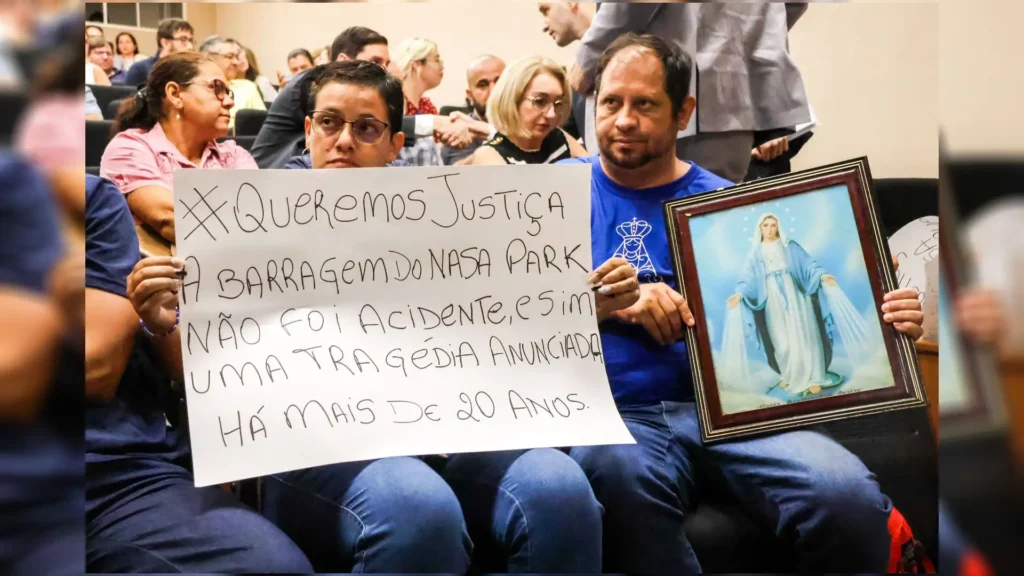 #QUEREMOS JUSTIÇA
A BARRAGEM DO NASA PARK
NÃO FOI ACIDENTE, E SIM
UMA TRAGÉDIA ANUNCIADA
HÁ MAIS DE 20 ANOS.